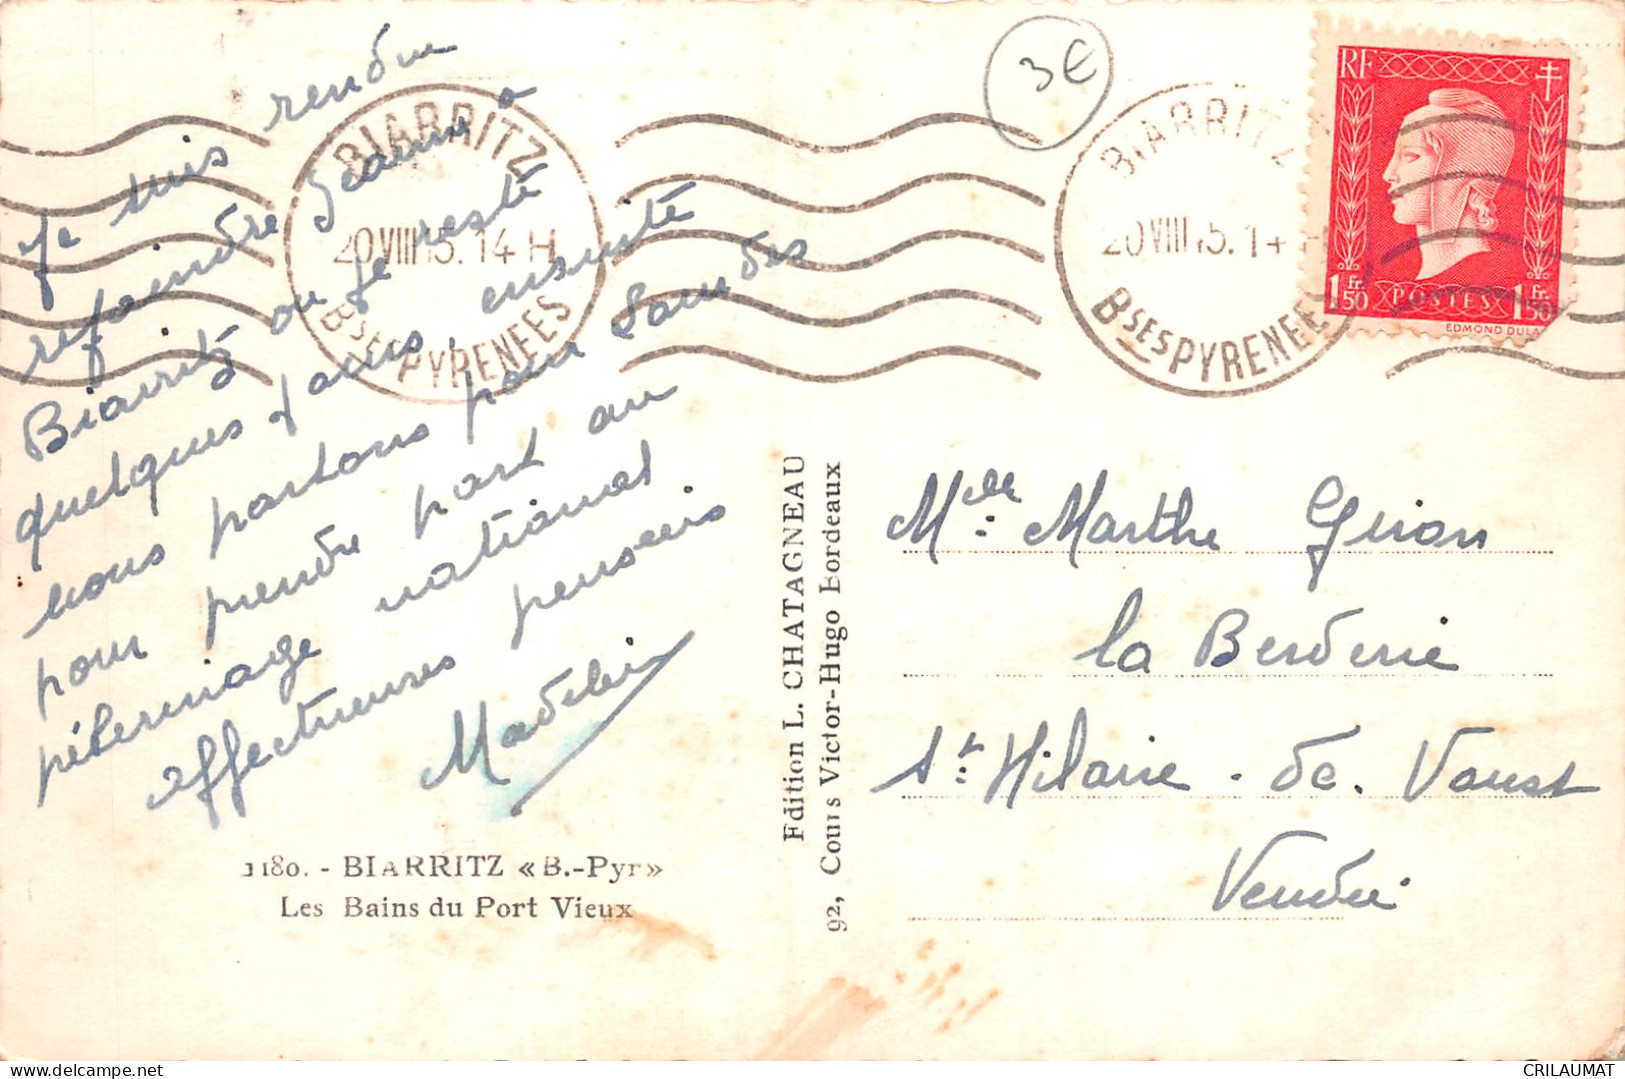 Je suis rendue
rejoindre Jeanne à
Biarritz où je reste
quelques jours, ensuite
nous partons pour Lourdes
pour prendre part au
pélerinage national
affectueuses pensées
Madeleine
1180. - BIARRITZ « B.-Pyr »
Les Bains du Port Vieux
Edition L. CHATAGNEAU
92, Cours Victor-Hugo Bordeaux
BIARRITZ
20 VIII 45. 14 H
Bses PYRENEES
3€
BIARRITZ
20 VIII 45. 14 H
Bses PYRENEES
RF
1fr50 POSTES 1fr50
EDMOND DULA
Melle: Marthe Guion
la Berderie
St: Hilaire - de. Voust
Vendée
CRILAUMAT